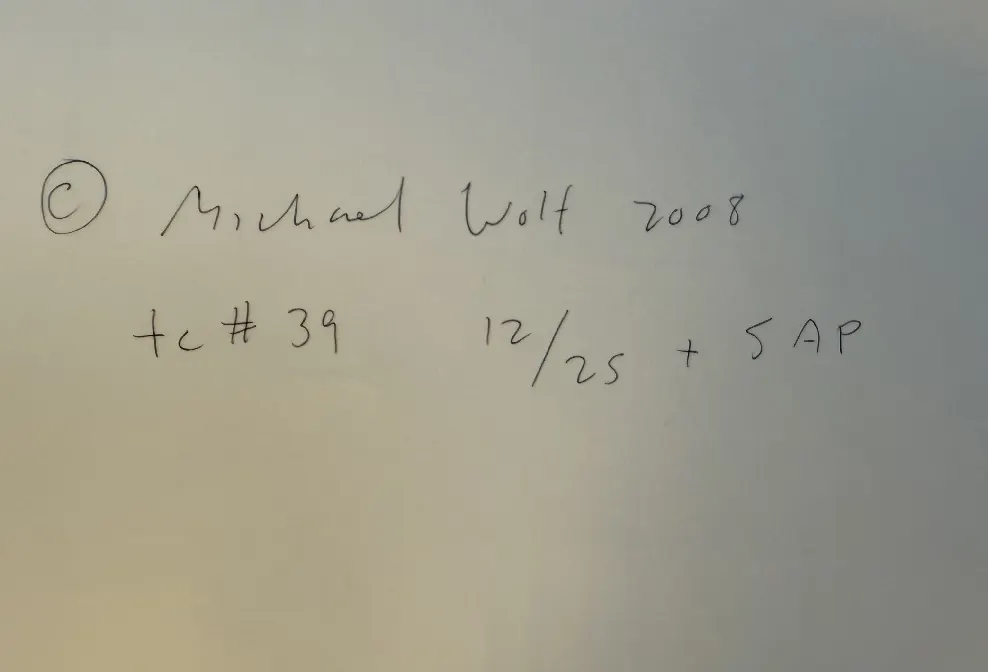 © Michael Wolf 2008
tc # 39 12/25 + 5 AP